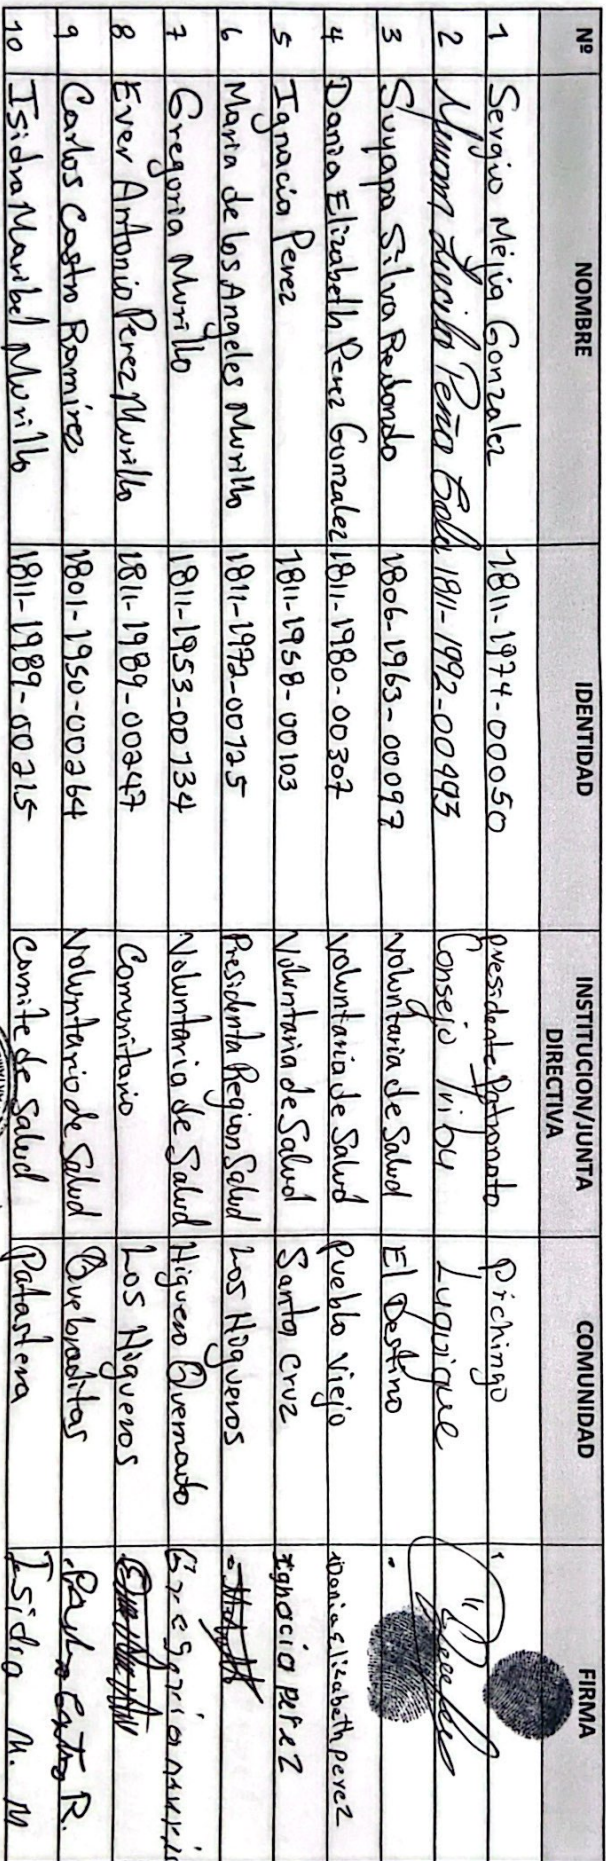 Nº NOMBRE IDENTIDAD INSTITUCION/JUNTA DIRECTIVA COMUNIDAD FIRMA
1 Sergio Mejia Gonzalez 1811-1974-00050 presidente Patronato Pichingo
2 Lucila Peña 1811-1992-00493 Consejo Tribu Luquigue
3 Suyapa Silva Redondo 1806-1963-00097 voluntaria de Salud El Destino
4 Dania Elizabeth Perez Gonzalez 1811-1980-00307 voluntaria de Salud Pueblo Viejo Dania Elizabeth perez
5 Ignacia Perez 1811-1958-00103 Voluntaria de Salud Santa Cruz Ignacia perez
6 Maria de los Angeles Murillo 1811-1972-00125 Presidenta Region Salud Los Higueros
7 Gregoria Murillo 1811-1953-00134 Voluntaria de Salud Higuero Quemado Gregoria
8 Ever Antonio Perez Murillo 1811-1989-00247 Comunitario Los Higueros
9 Carlos Castro Ramirez 1801-1950-00264 Voluntario de Salud Quebraditas R.
10 Isidra Maribel Murillo 1811-1989-00215 comite de Salud Patastera Isidra M. M